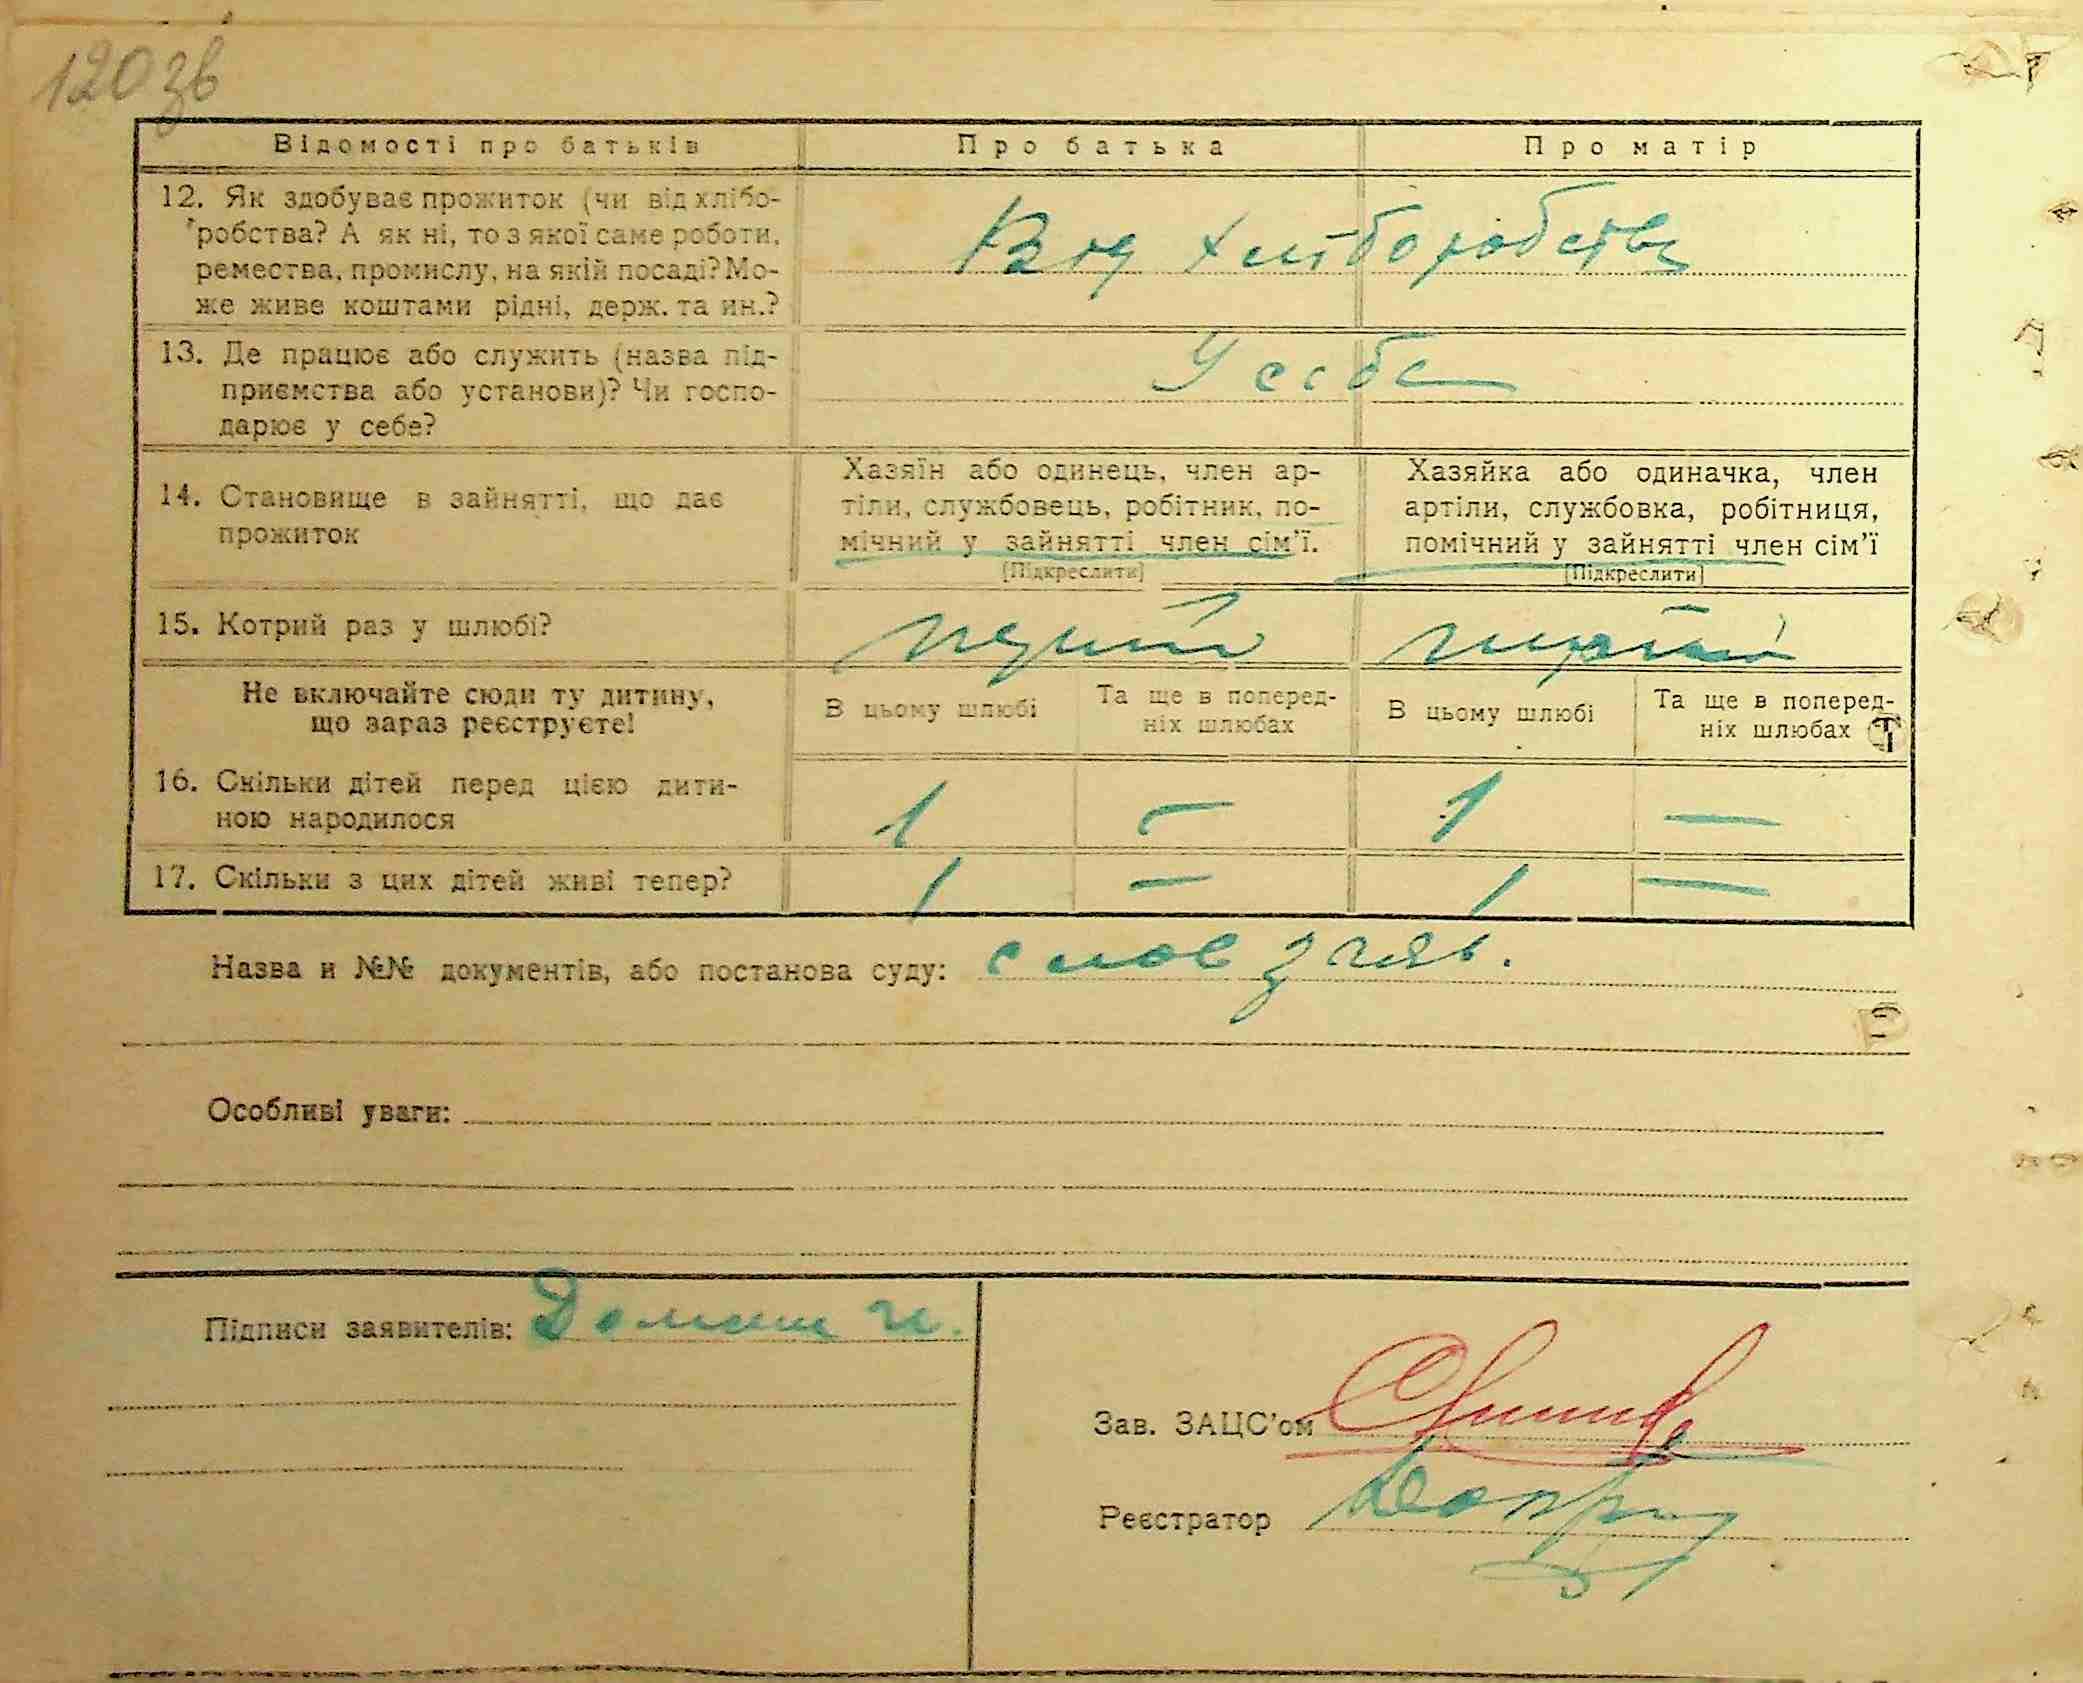 120 зв
Відомості про батьків
Про батька
Про матір
12. Як здобуває прожиток (чи від хлібо-
робства? А як ні, то з якої саме роботи,
ремества, промислу, на якій посаді? Мо-
же живе коштами рідні, держ. та ин.?
Від хліборобства
13. Де працює або служить (назва під-
приємства або установи)? Чи госпо-
дарює у себе?
У себе
14. Становище в зайнятті, що дає
прожиток
Хазяїн або одинець, член ар-
тіли, службовець, робітник, по-
мічний у зайнятті член сім'ї.
(Підкреслити)
Хазяйка або одиначка, член
артіли, службовка, робітниця,
помічний у зайнятті член сім'ї
(Підкреслити)
15. Котрий раз у шлюбі?
Не включайте сюди ту дитину,
що зараз реєструєте!
В цьому шлюбі
Та ще в поперед-
ніх шлюбах
В цьому шлюбі
Та ще в поперед-
ніх шлюбах
16. Скільки дітей перед цією дити-
ною народилося
1 — 1 —
17. Скільки з цих дітей живі тепер?
1 — 1 —
Назва и №№ документів, або постанова суду: слов заяв.
Особливі уваги:
Підписи заявителів:
Зав. ЗАЦС'ом
Реєстратор